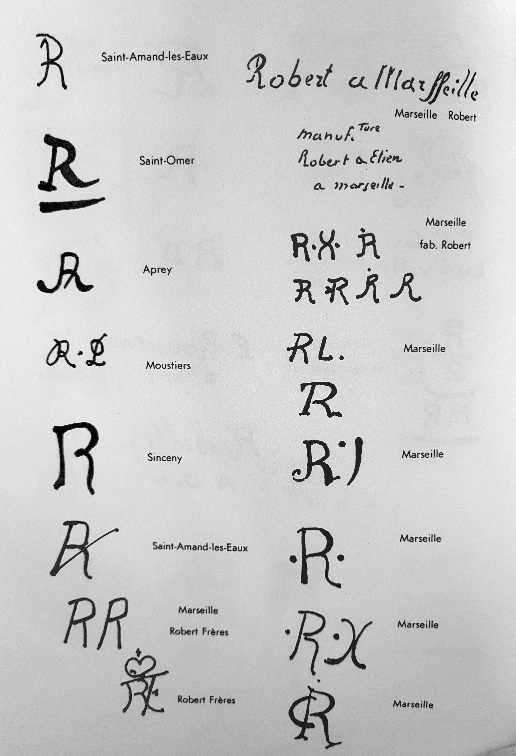 R Saint-Amand-les-Eaux
R Saint-Omer
R Aprey
R · L Moustiers
R Sinceny
R Saint-Amand-les-Eaux
RR Marseille
Robert Frères
Robert Frères
Robert a Marsseille
Marseille Robert
manuf.ture
Robert a Etien
a marseille -
Marseille
fab. Robert
R·X· R
R R R R
RL. Marseille
R
R Marseille
·R· Marseille
·R·X Marseille
R Marseille